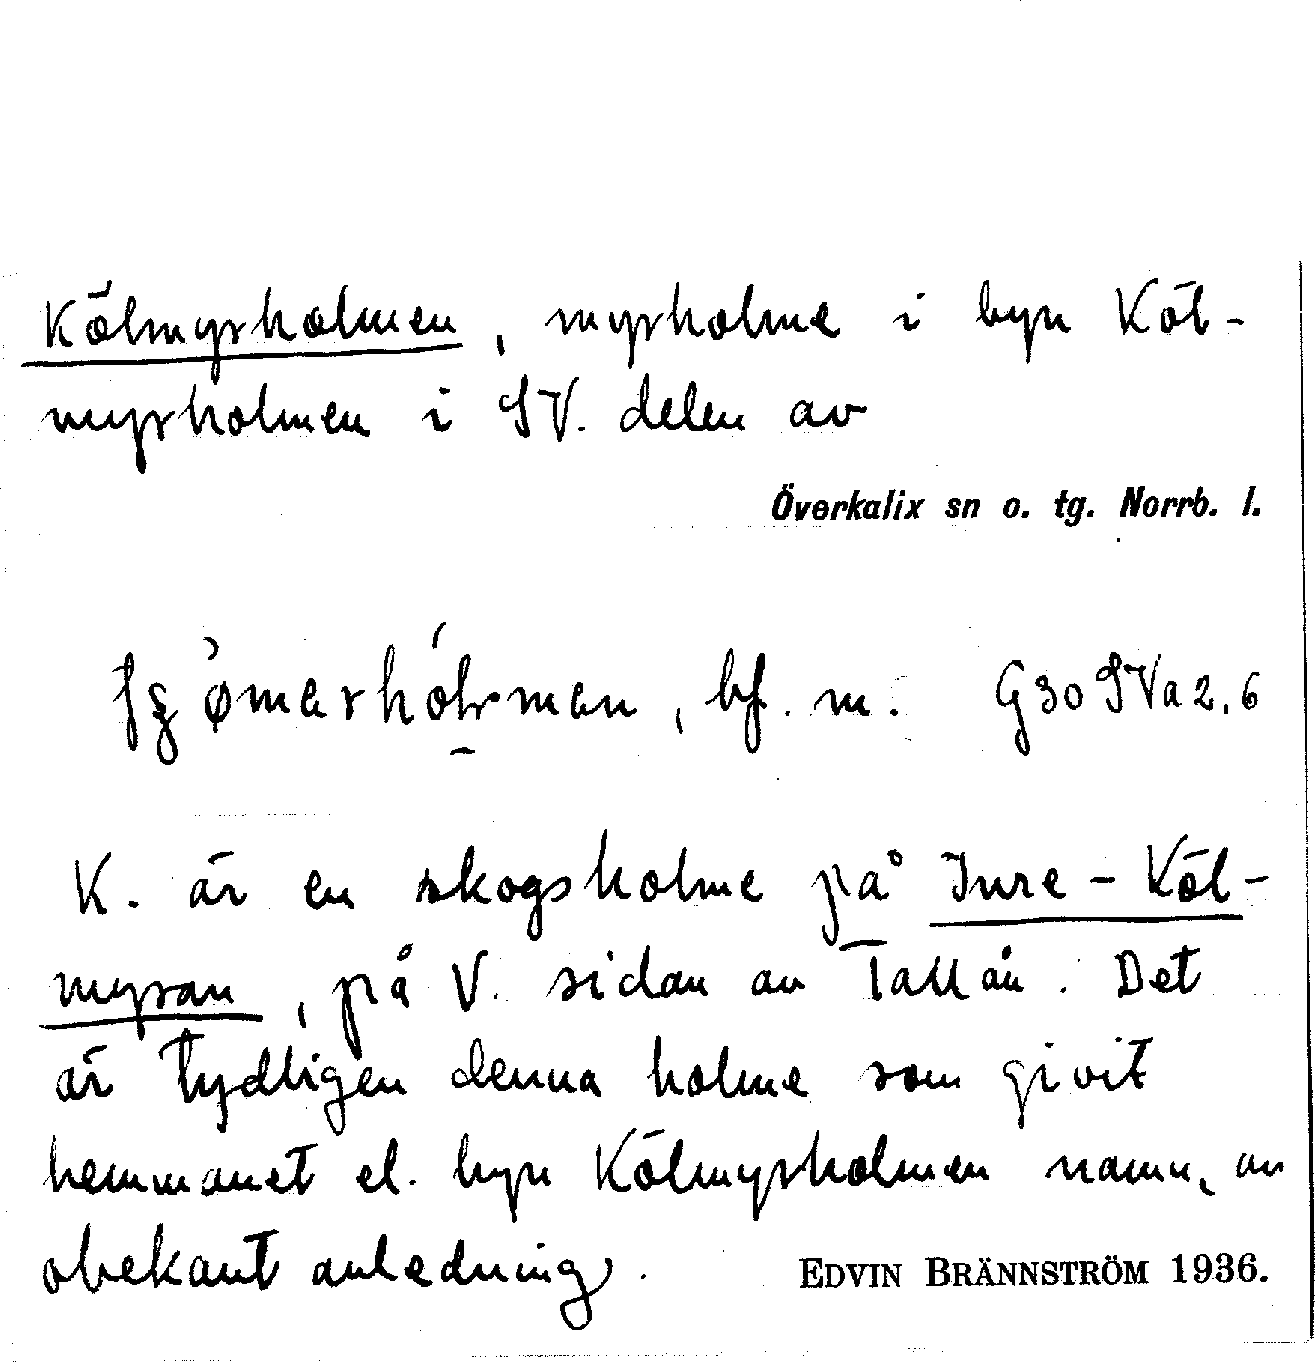 Kölmyrholmen, myrholme i byn Köl-
myrholmen i SV. delen av
Överkalix sn o. tg. Norrb. l.
bf. m. G30SVa2,6
K. är en skogsholme på Jure-Köl-
myran, på V. sidan av Tallån. Det
är tydligen denna holme som givit
hemmanet el. byn Kölmyrholmen namn, av
obekant anledning.
EDVIN BRÄNNSTRÖM 1936.